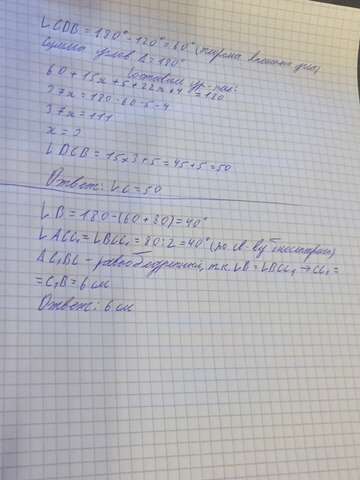 ∠CDB = 180° - 120° = 60° (теорема внешнего угла)
Сумма углов Δ = 180°
Составим ур-ние:
60 + 15x + 5 + 22x + 4 = 180
37x = 180 - 60 - 5 - 4
37x = 111
x = 3
∠DCB = 15×3+5 = 45+5 = 50
Ответ: ∠C = 50
∠B = 180 - (60 + 80) = 40°
∠ACC₁ = ∠BCC₁ = 80 : 2 = 40° (по биссектрисы)
ΔC₁BC - равнобедренный, т.к. ∠B = ∠BCC₁ → CC₁ =
= C₁B = 6 см
Ответ: 6 см